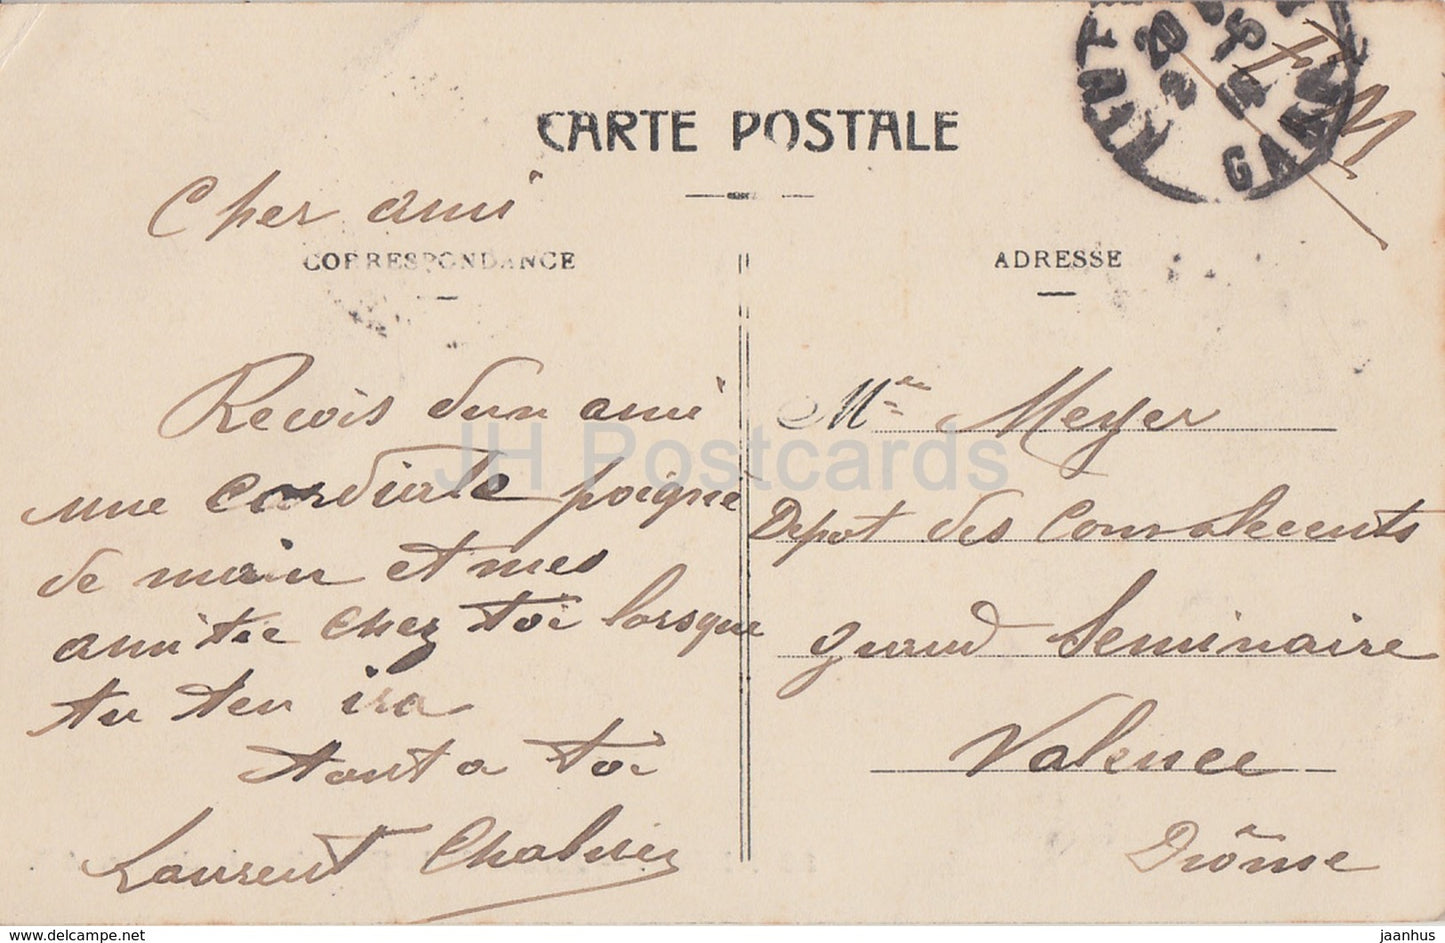 CARTE POSTALE
FM
GARD
Cher ami
CORRESPONDANCE
Recois dun ami
une cordiale poigné
de main et mes
amitie chez toi lorsque
tu ten ira
tout a toi
Laurent
ADRESSE
Mr Meyer
Depot des Convalecents
grand Seminaire
Valence
Drôme
JH Postcards
www.delcampe.net
jaanhus